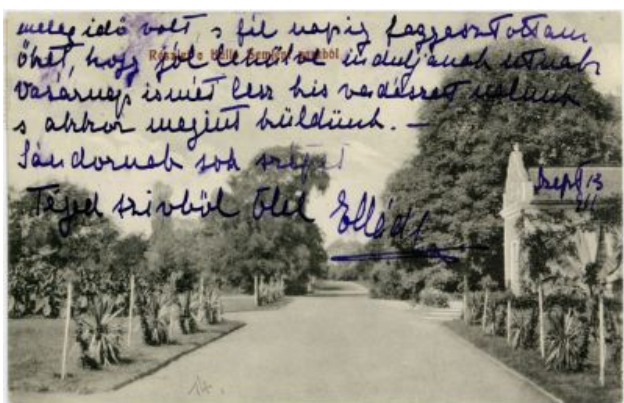 meleg idő volt, s fél napig faggasztottam
őket, hogy jól lehűlve induljanak utnak
Részlet a Kállay park ból
Vasárnap ismét lesz kis vadászat nálunk
s akkor megint küldünk. —
Sándornak sok szépet
Téged szivből ölel Ellád
Szept 13
14.